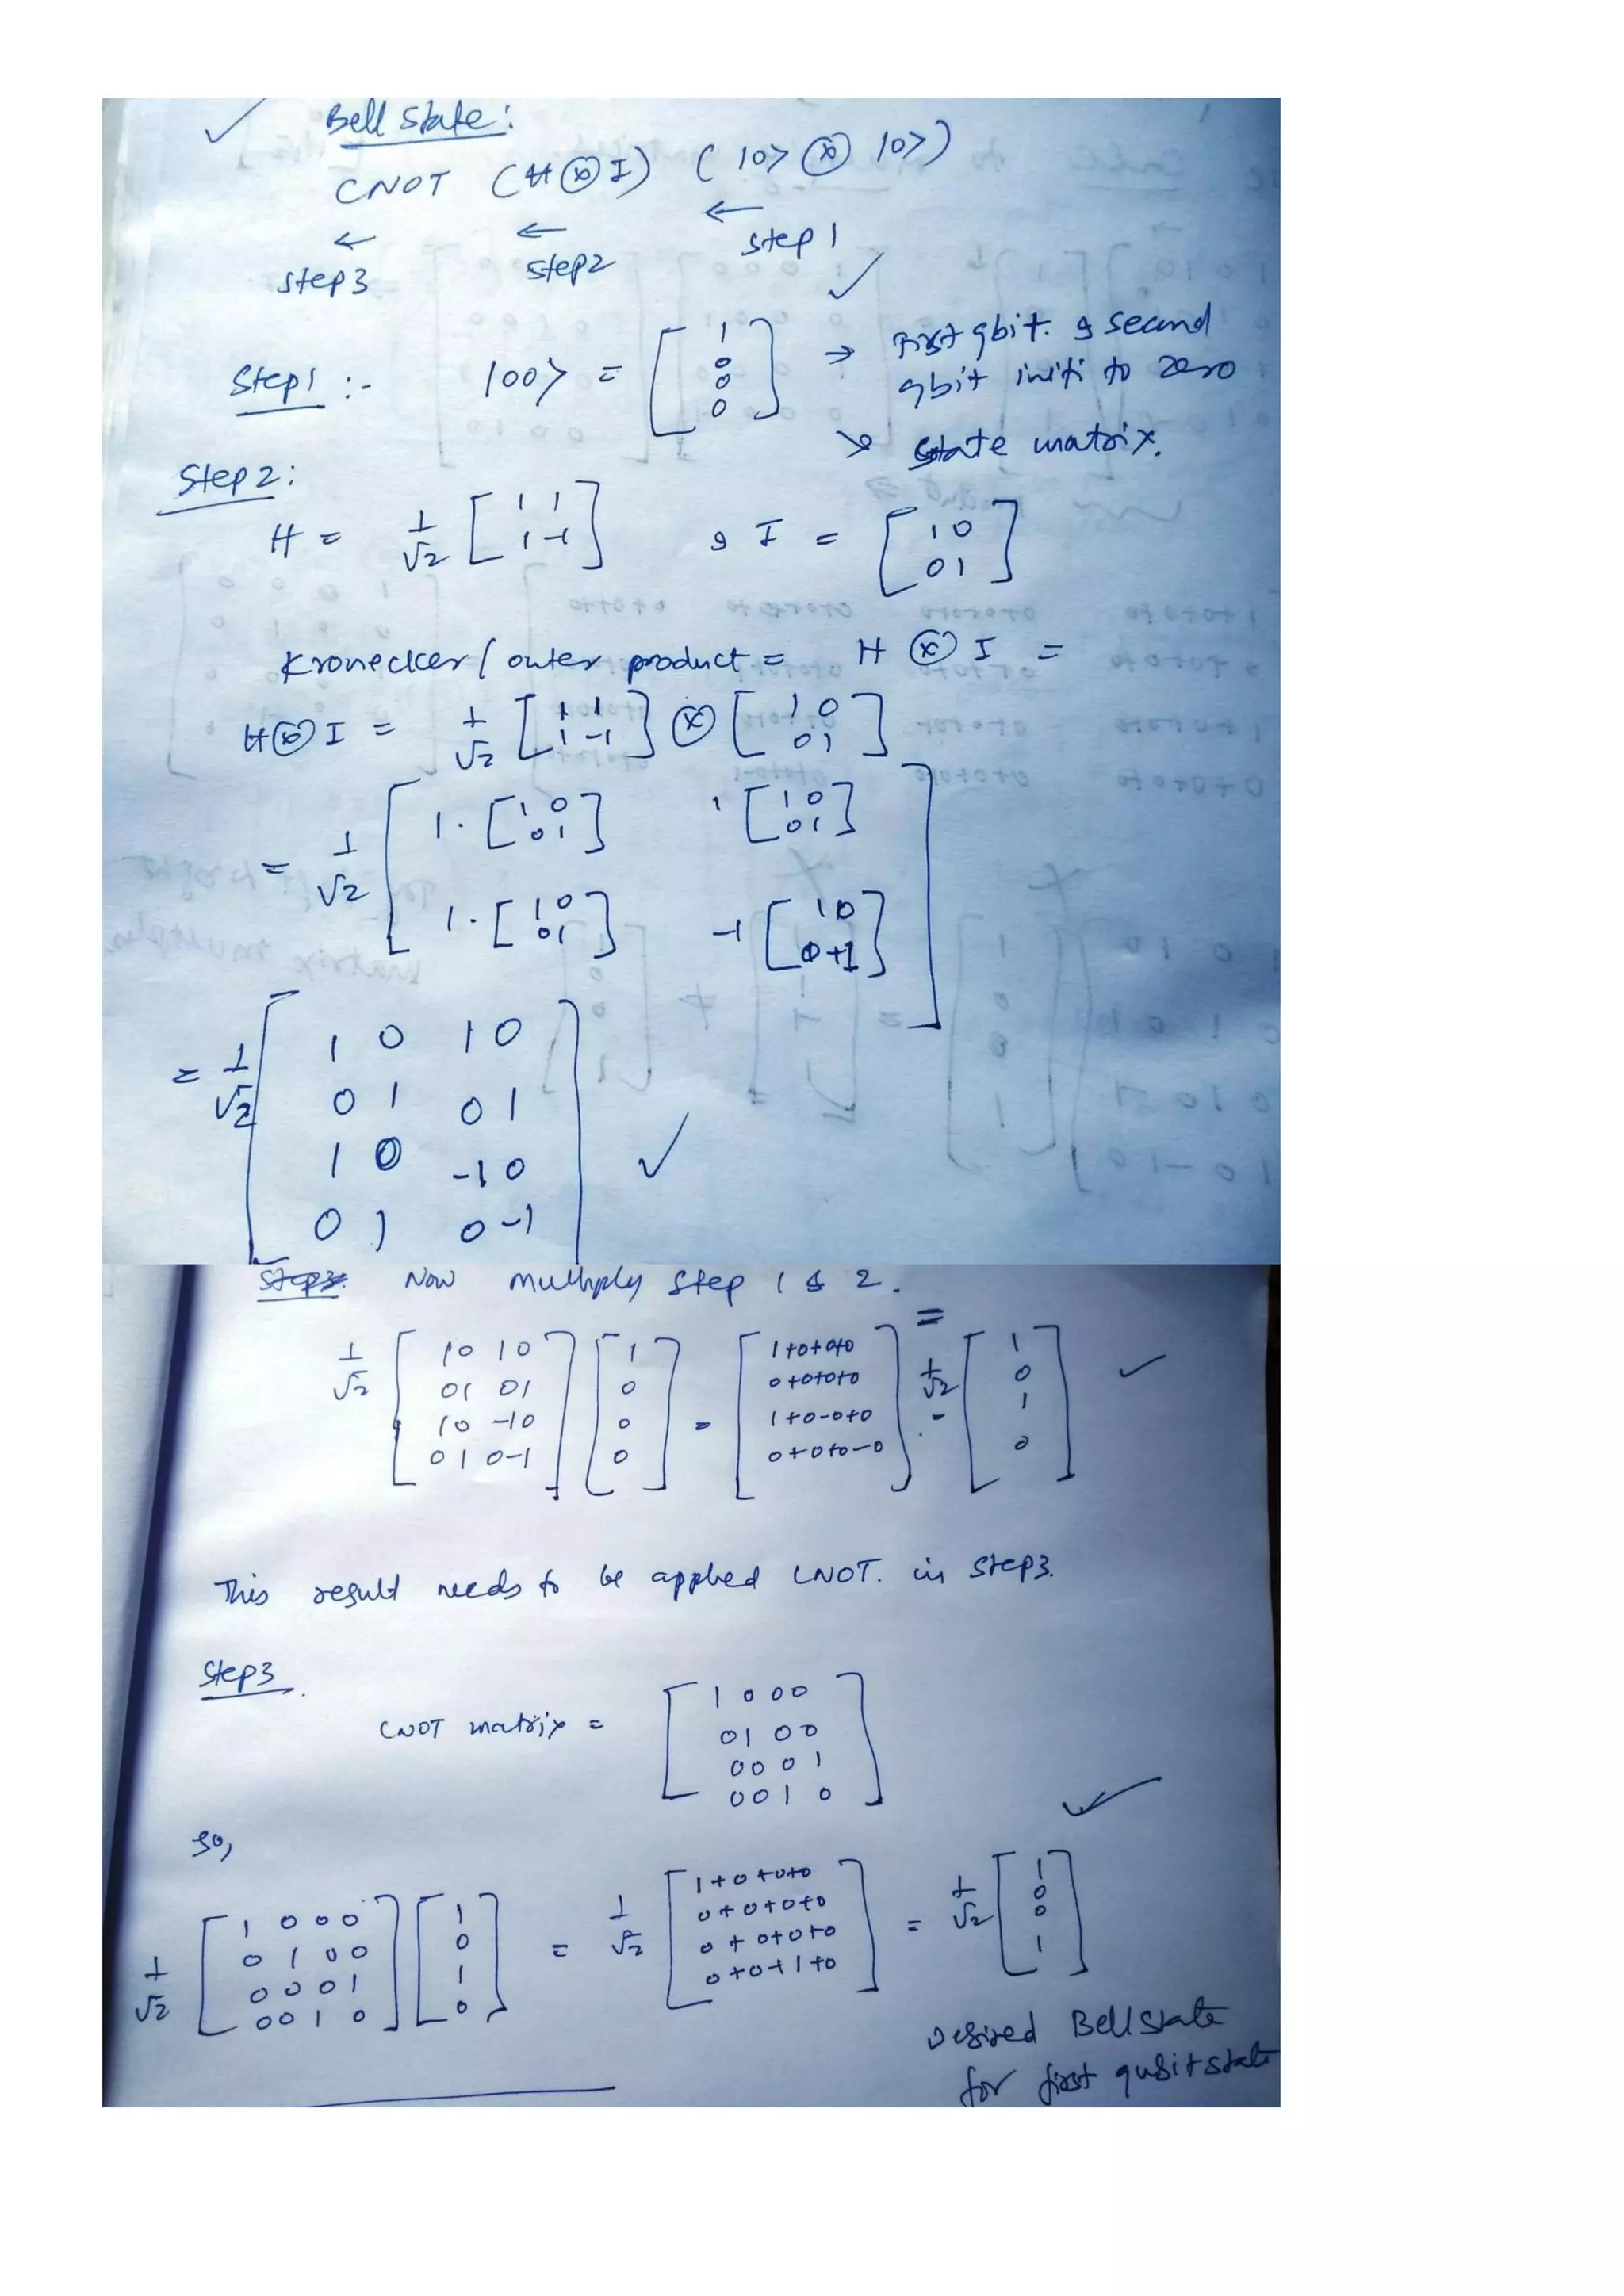 Bell State:
CNOT (H⊗I) ( |0> ⊗ |0>)
← ← ←
step3 step2 step 1
Step1 :- |00> = [ 1 0 0 0 ] → First qbit. & second
qbit initi to zero
→ state matrix.
Step 2:
H = 1/√2 [ 1 1 1 -1 ] & I = [ 1 0 0 1 ]
Kronecker / outer product = H ⊗ I =
H⊗I = 1/√2 [ 1 1 1 -1 ] ⊗ [ 1 0 0 1 ]
= 1/√2 [ 1. [ 1 0 0 1 ] 1 [ 1 0 0 1 ]
1. [ 1 0 0 1 ] -1 [ 1 0 0 +1 ] ]
= 1/√2 [ 1 0 1 0
0 1 0 1
1 0 -1 0
0 1 0 -1 ]
Step3. Now multiply step 1 & 2.
1/√2 [ 1 0 1 0 ] [ 1 ] = [ 1+0+0+0 ] = 1/√2 [ 1 ]
[ 0 1 0 1 ] [ 0 ] [ 0+0+0+0 ] [ 0 ]
[ 1 0 -1 0 ] [ 0 ] [ 1+0-0+0 ] [ 1 ]
[ 0 1 0 -1 ] [ 0 ] [ 0+0+0-0 ] [ 0 ]
This result needs to be applied CNOT. in step3.
Step3.
CNOT matrix = [ 1 0 0 0
0 1 0 0
0 0 0 1
0 0 1 0 ]
so,
1/√2 [ 1 0 0 0 ] [ 1 ] = 1/√2 [ 1+0+0+0 ] = 1/√2 [ 1 ]
[ 0 1 0 0 ] [ 0 ] [ 0+0+0+0 ] [ 0 ]
[ 0 0 0 1 ] [ 1 ] [ 0+0+0+0 ] [ 0 ]
[ 0 0 1 0 ] [ 0 ] [ 0+0+1+0 ] [ 1 ]
Desired Bell State
for first qubit state